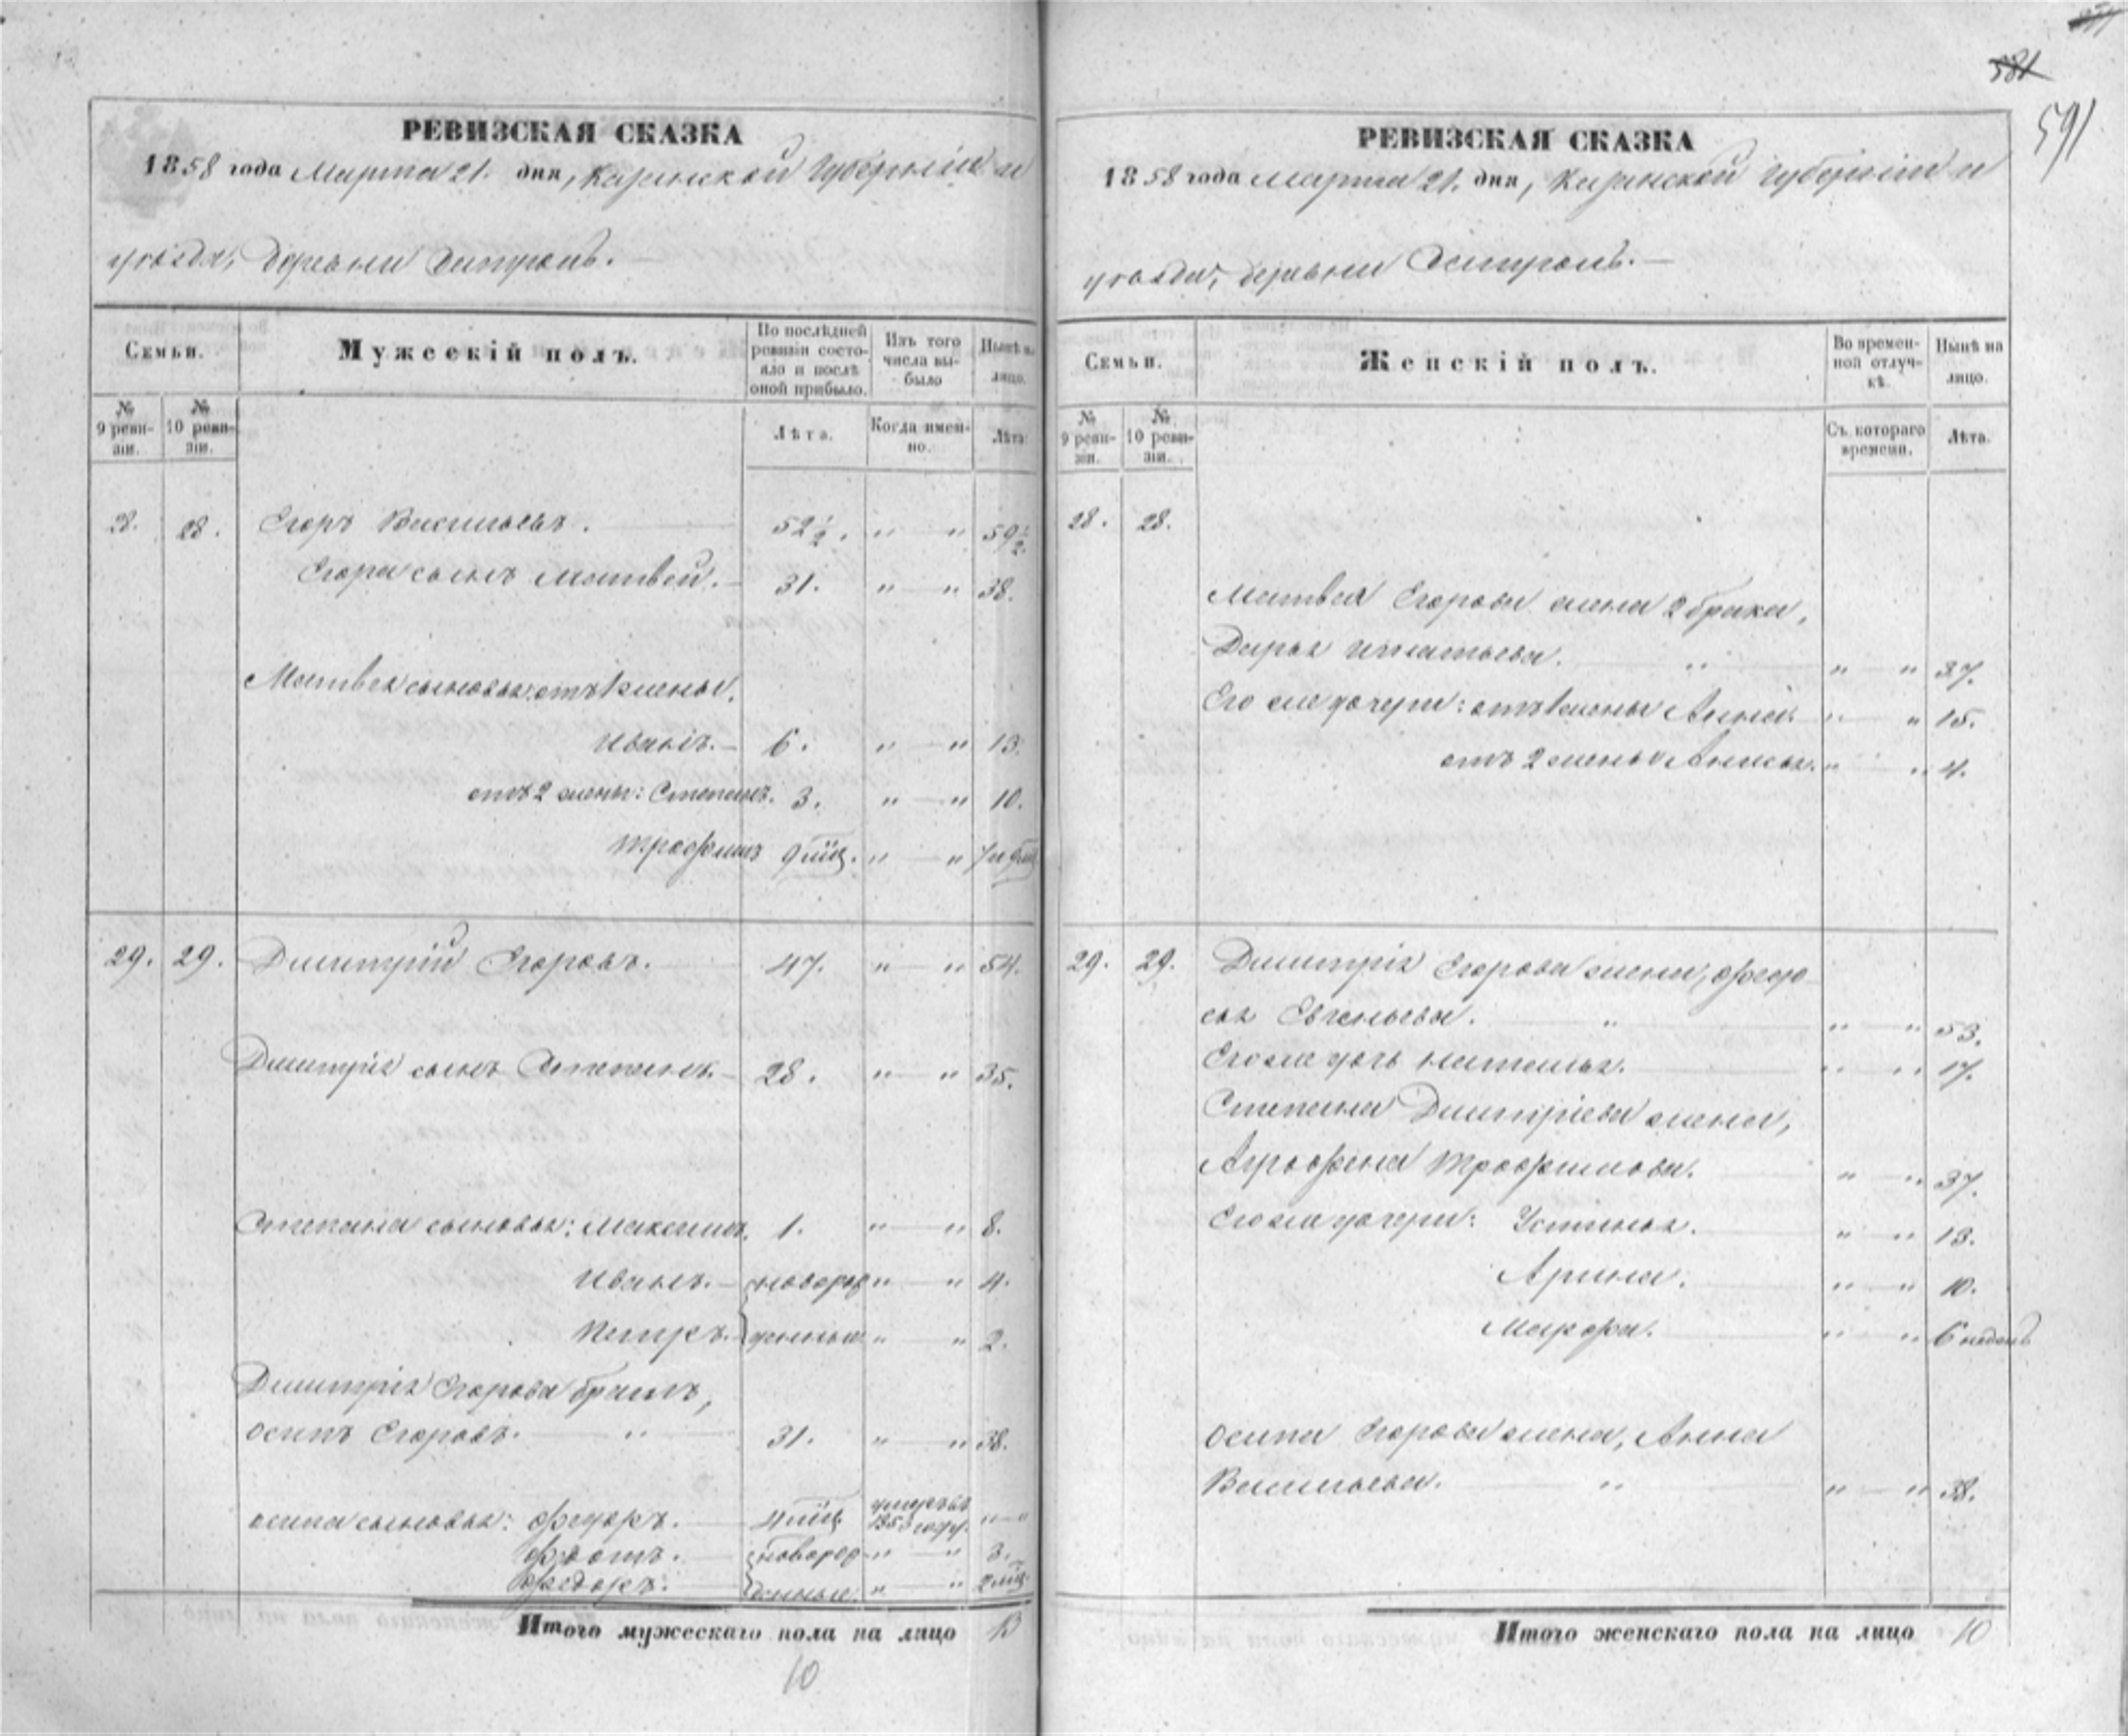 581
591
РЕВИЗСКАЯ СКАЗКА
1858 года Марта 21. дня, Казанской Губерніи и
уѣзда, деревни
Семьи.
Мужескій полъ.
По послѣдней ревизіи состояло и послѣ оной прибыло.
Изъ того числа выбыло
Нынѣ на лицо.
№ 9 ревизіи.
№ 10 ревизіи.
Лѣта.
Когда имен-
но.
Лѣта.
28. 28. Егоръ Васильевъ. 52½. " — " 59½
Егора сынъ Матвей. — 31. " — " 38.
Матвея сыновья: отъ 1 жены.
Иванъ. — 6. " — " 13.
отъ 2 жены: Степанъ. 3. " — " 10.
Трофимъ 9 мц. " — " 7 и 9 мц
29. 29. Димитрій Егоровъ. 47. " — " 54.
Димитрія сынъ Степанъ. — 28. " — " 35.
Степана сыновья: Максимъ. 1. " — " 8.
Иванъ. — новорож " — " 4.
Петръ. денные " " 2.
Димитрія Егорова братъ,
Осипъ Егоровъ. " 31. " — " 38.
Осипа сыновья: Федоръ. 4 мц умеръ въ 1853 году. " — "
Фротъ. новорож " — " 3.
Федоръ. денные. " — " 2 мц
Итого мужескаго пола на лицо 13
10
РЕВИЗСКАЯ СКАЗКА
1858 года Марта 21. дня, Казанской Губерніи и
уѣзда, деревни
Семьи.
Женскій полъ.
Во времен-
ной отлуч-
кѣ.
Нынѣ на
лицо.
№ 9 ревизіи.
№ 10 ревизіи.
Съ котораго
времени.
Лѣта.
28. 28.
Матвея Егорова жена 2 брака,
Дарья Игнатьева. " " — " 37.
Его же дочери: отъ 1 жены Анна. " — " 15.
отъ 2 жены Анисья. " — " 4.
29. 29. Димитрія Егорова жена, Федо
сья Евгеньева. " " — " 53.
Его же дочь Наталья. " — " 17.
Степана Димитріева жена,
Аграфена Трофимова. " — " 37.
Его же дочери: Устинья. " — " 13.
Арина. " — " 10.
Марфа. " — " 6 недѣль
Осипа Егорова жена, Анна
Васильева. " " — " 38.
Итого женскаго пола на лицо 10